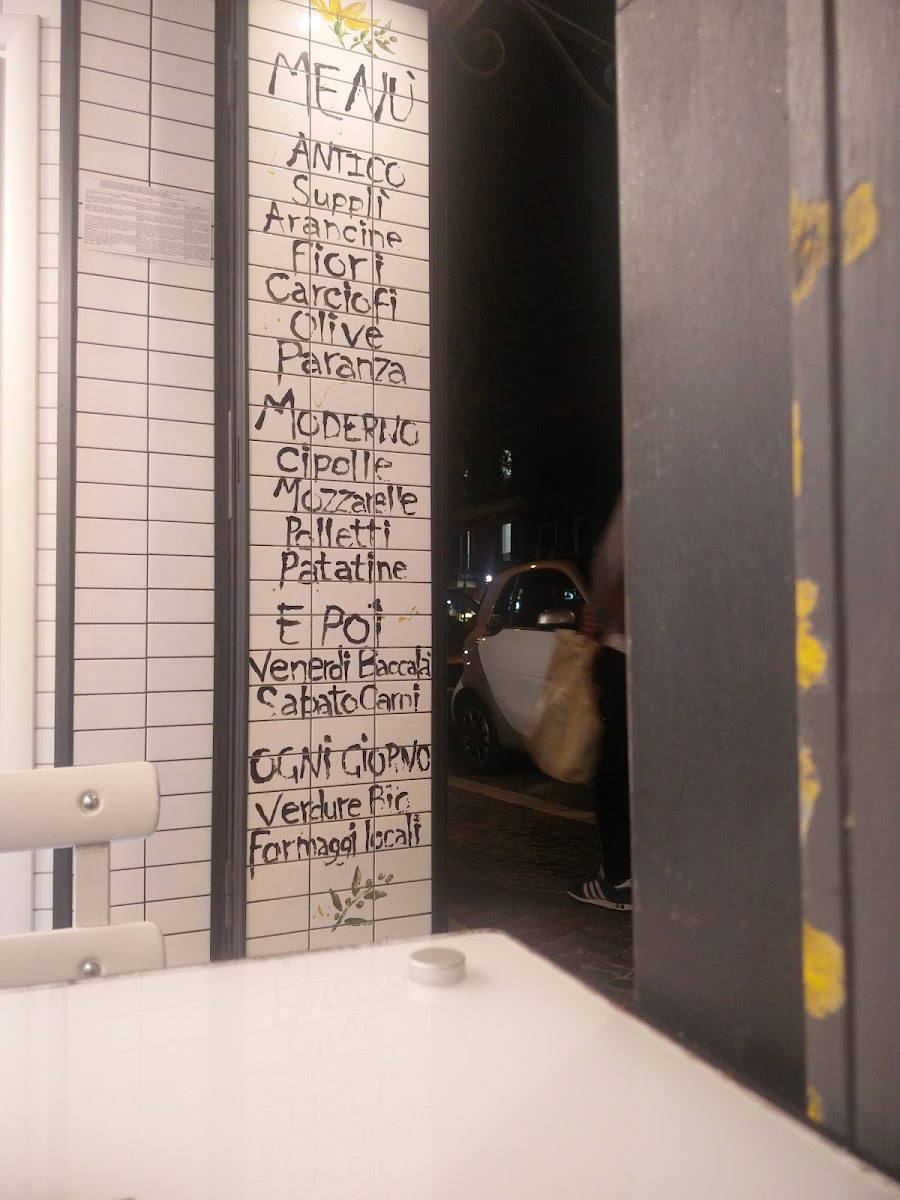 MENÙ
ANTICO
Supplì
Arancine
Fiori
Carciofi
Olive
Paranza
MODERNO
Cipolle
Mozzarelle
Polletti
Patatine
E Poi
Venerdi Baccalà
Sabato Carni
OGNI GIORNO
Verdure Bio
Formaggi locali